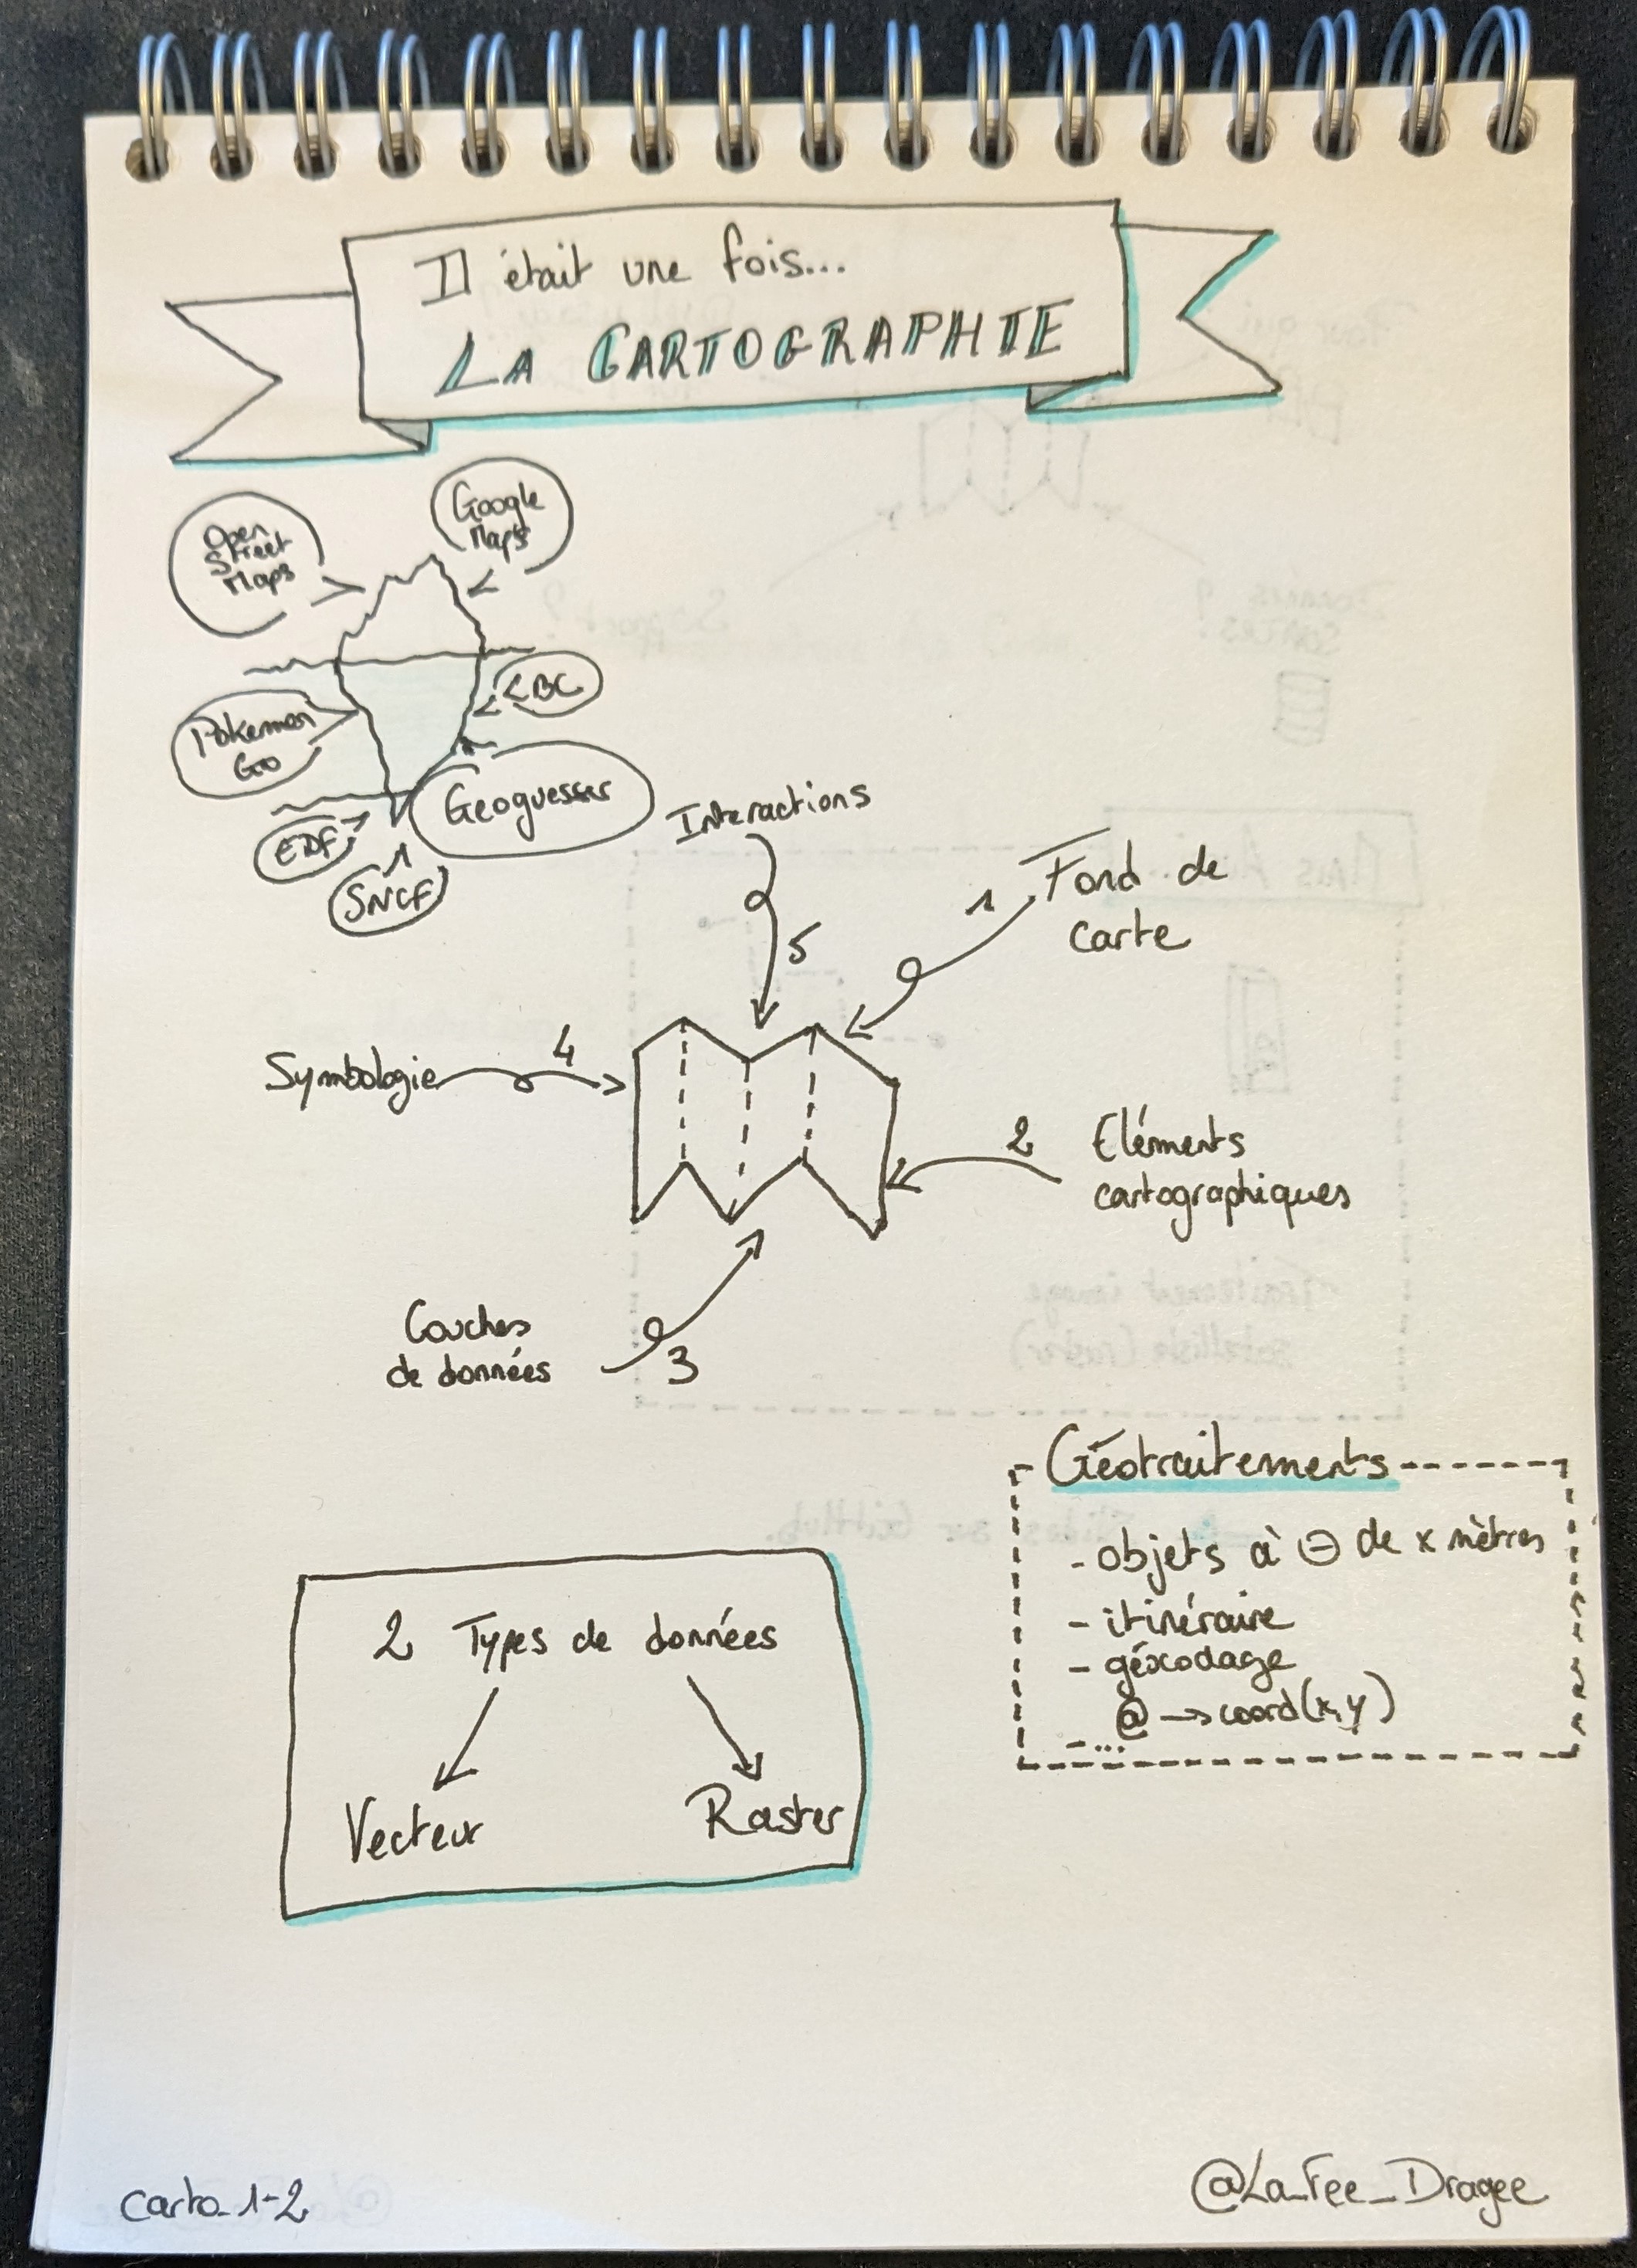 Il était une fois...
LA CARTOGRAPHIE
Open
Street
Maps
Google
Maps
LBC
Pokemon
Go
Geoguesser
EDF
SNCF
Interactions
5
1 Fond de
carte
Symbologie 4
2 Eléments
cartographiques
Couches
de données 3
Géotraitements
- objets à ⊖ de x mètres
- itinéraire
- géocodage
@ → coord(x,y)
- ...
2 Types de données
Vecteur
Raster
Carto_1-2
@La_Fee_Dragee